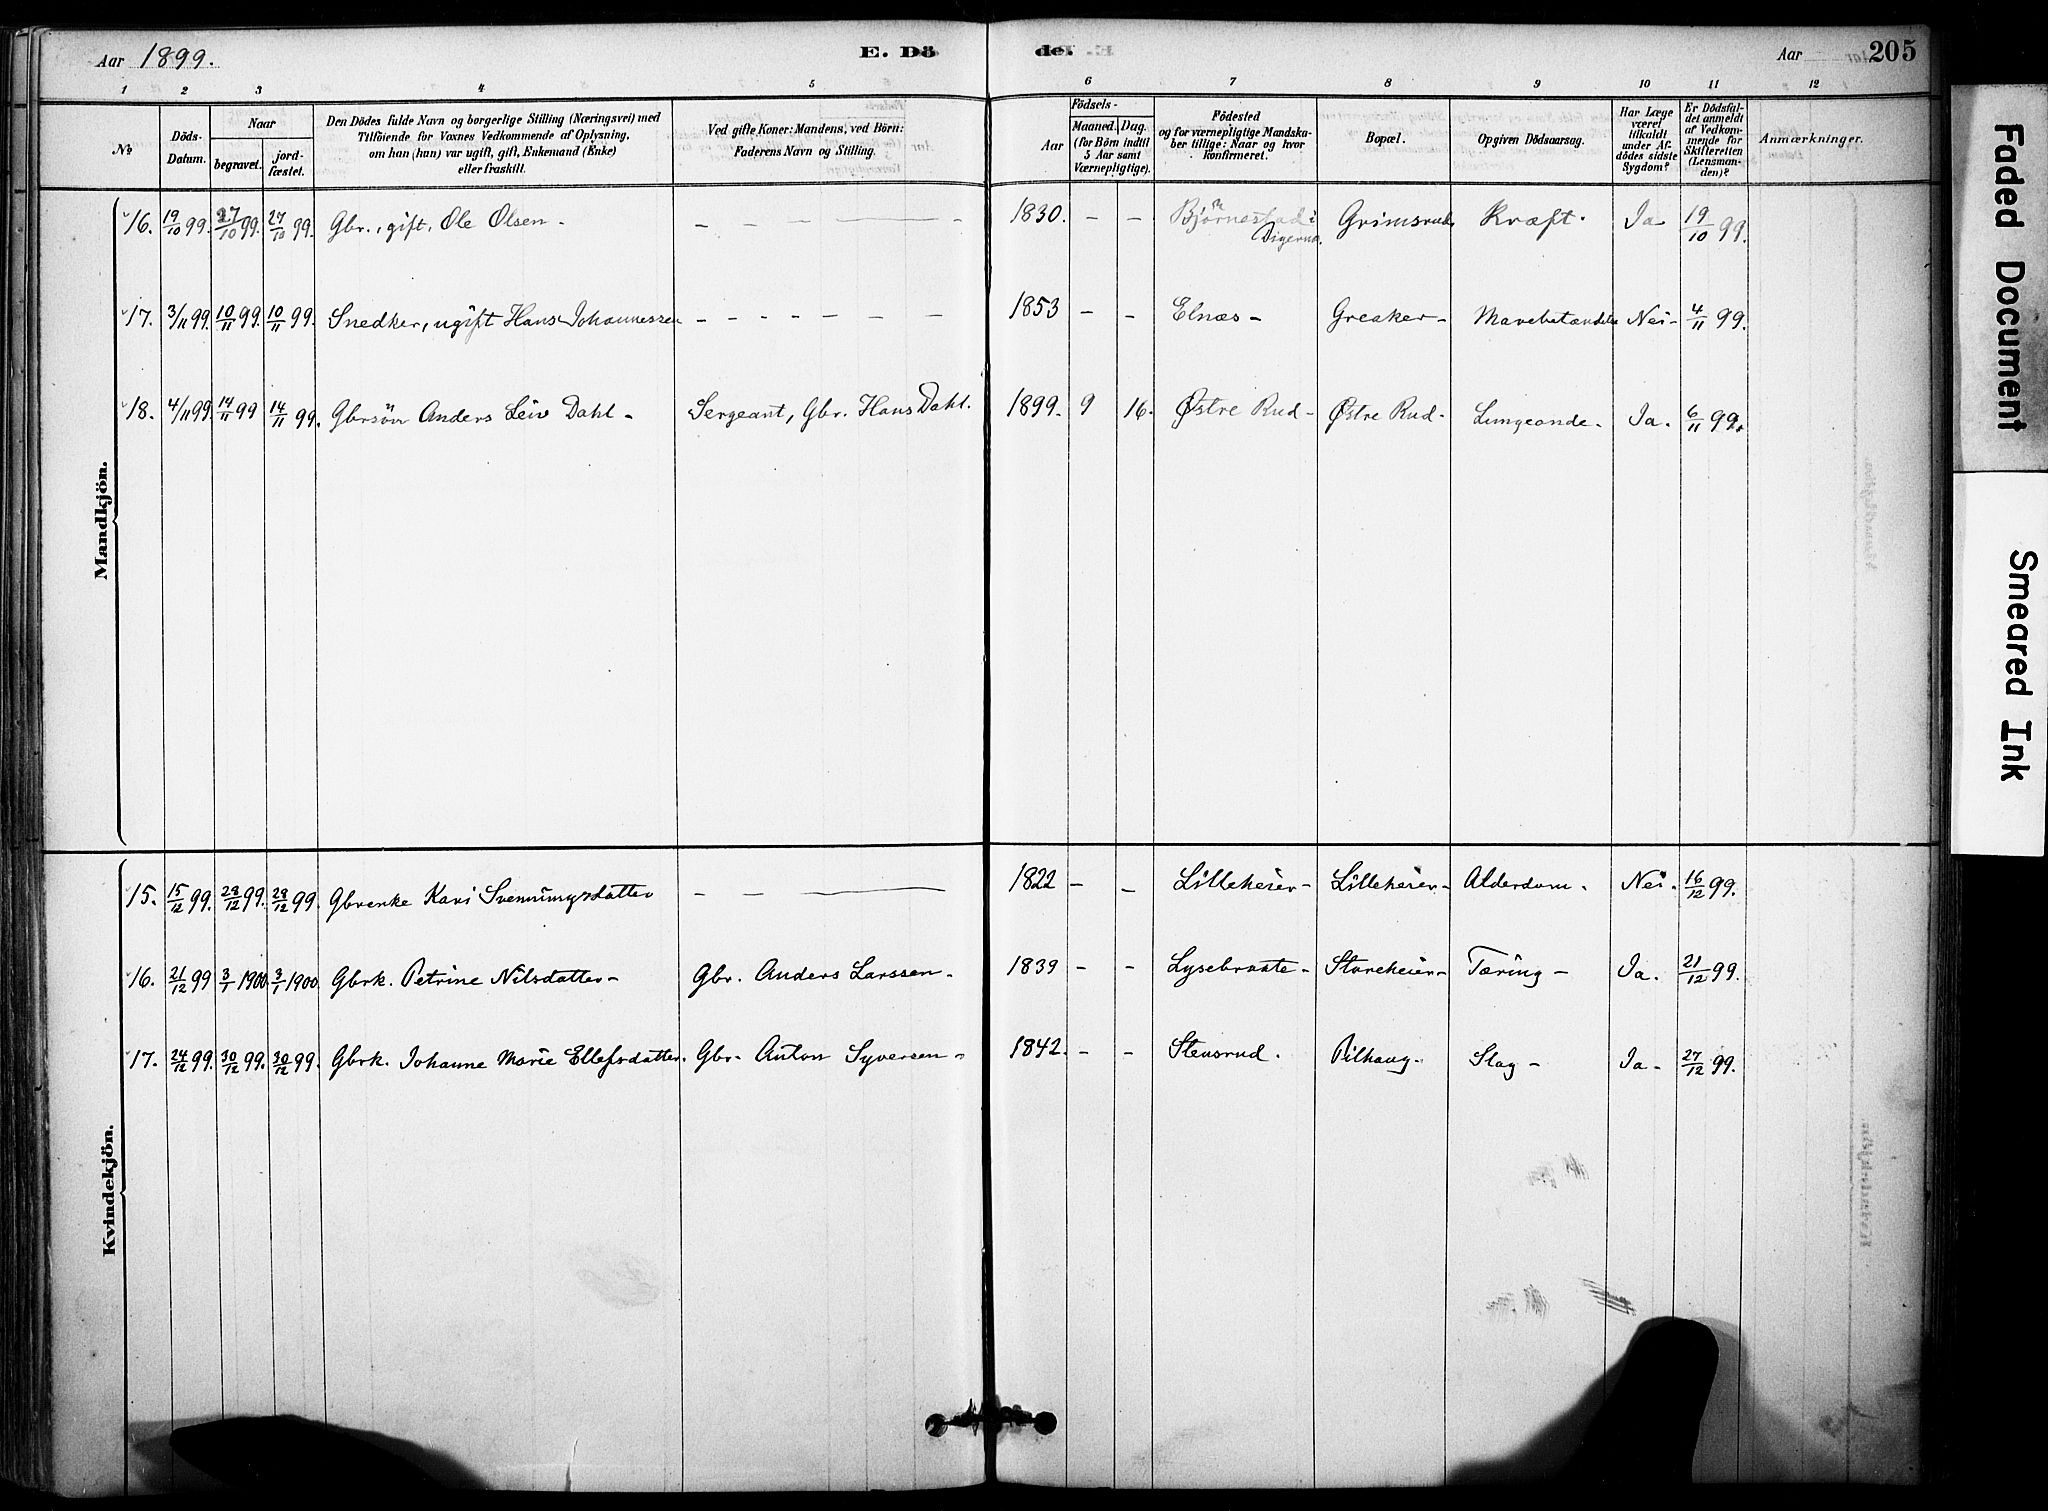 Aar 1899. E. Dö de. Aar 205
1 2 3 4 5 6 7 8 9 10 11 12
№ Döds-Datum. Naar begravet. jord-fæstet. Den Dödes fulde Navn og borgerlige Stilling (Næringsvei) med Tilföiende for Voxnes Vedkommende af Oplysning, om han (hun) var ugift, gift, Enkemand (Enke) eller fraskilt. Ved gifte Koner: Mandens, ved Börn: Faderens Navn og Stilling. Födsels- Aar Maaned. Dag. (for Börn indtil 5 Aar samt Værnepligtige). Födested og for værnepligtige Mandskaber tillige: Naar og hvor konfirmeret. Bopæl. Opgiven Dödsaarsag. Har Læge været tilkaldt under Afdödes sidste Sygdom? Er Dödsfaldet anmeldt af Vedkommende for Skifteretten (Lensmanden)? Anmærkninger.
Mandkjön.
16. 19/10 99. 27/10 99. 27/10 99. Gbr., gift, Ole Olsen - - - 1830. - - Bjørnestad i Digernes. Grimsrud. Kræft. Ja 19/10 99.
17. 3/11 99. 10/11 99. 10/11 99. Snedker, ugift Hans Johannessen - - - - - - 1853 - - Elnæs - Greaker - Mavebetændelse Nei - 4/11 99.
18. 4/11 99. 14/11 99 14/11 99. Gbrsön Anders Leiv Dahl - Sergeant, Gbr. Hans Dahl. 1899. 9 16. Østre Rud - Østre Rud - Lungeonde. Ja. 6/11 99.
Kvindekjön.
15. 15/12 99. 28/12 99. 28/12 99. Gbrenke Kari Svenningsdatter - - 1822 - - Lilleheier - Lilleheier - Alderdom. Nei. 16/12 99.
16. 21/12 99 3/1 1900. 3/1 1900. Gbrk. Petrine Nilsdatter - Gbr. Anders Larssen - 1839 - - Lysebraate - Storeheier - Tæring - Ja. 21/12 99.
17. 24/12 99. 30/12 99. 30/12 99. Gbrk. Johanne Marie Ellefsdatter. Gbr. Anton Syversen - 1842. - - Stensrud. Pilhaug. Slag - Ja - 27/12 99.
Faded Document
Smeared Ink